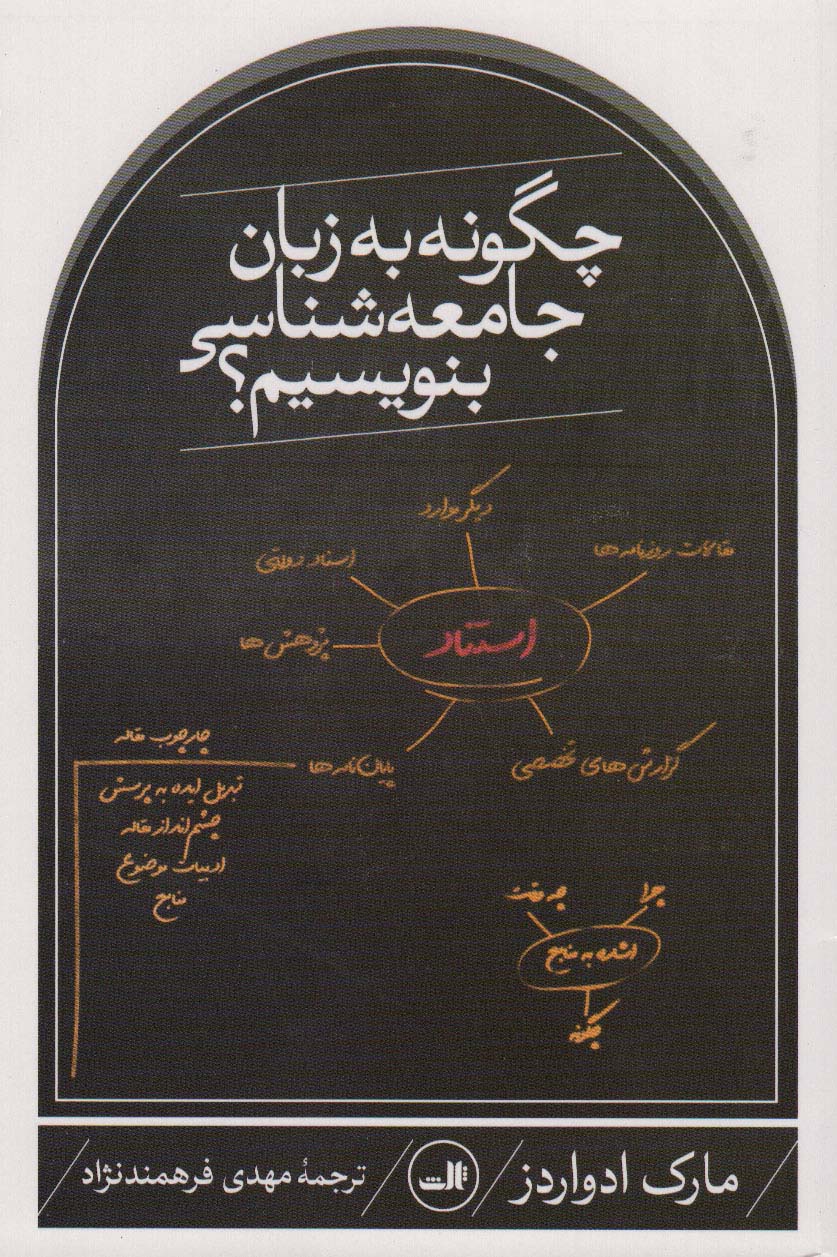 چگونه به زبان
جامعه‌شناسی
بنویسیم؟
دیگر موارد
مقالات روزنامه ها
اسناد دولتی
اسناد
پژوهش ها
گزارش های تخصصی
پایان نامه ها
چارچوب مقاله
تبدیل ایده به پرسش
چشم انداز مقاله
ادبیات موضوع
منابع
چرا
چه وقت
اشاره به منابع
چگونه
مارک ادواردز
ثالث
ترجمهٔ مهدی فرهمندنژاد